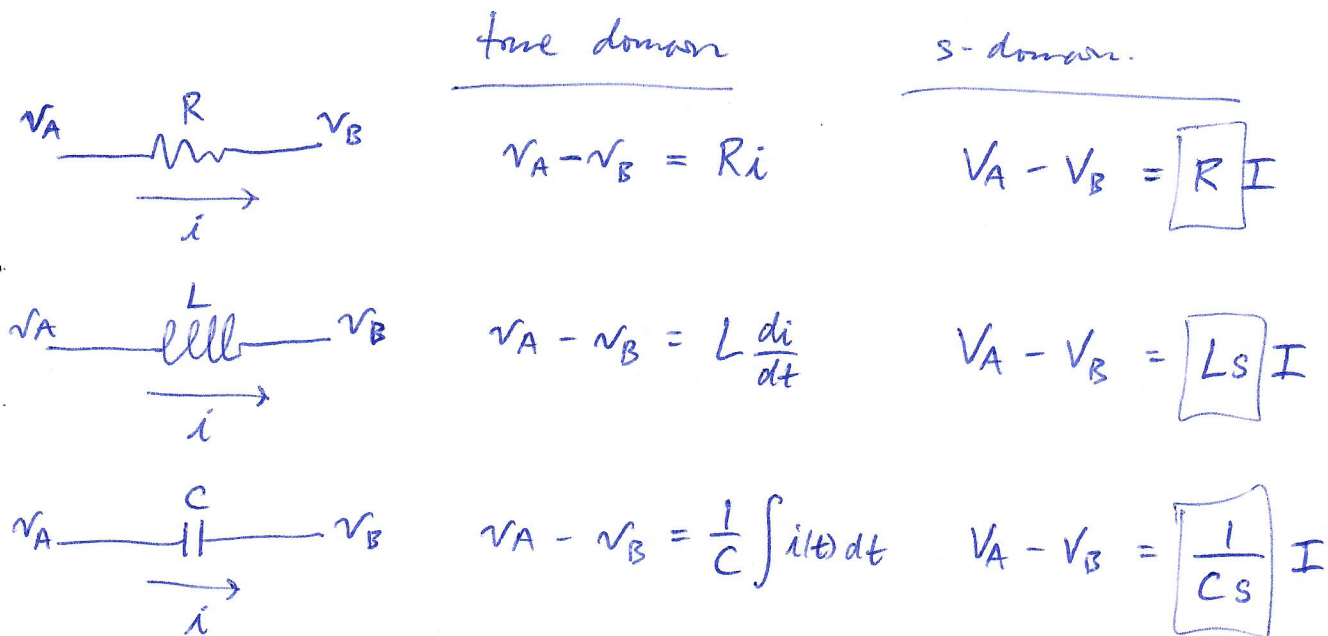 time domain s-domain.
R
v_A v_B v_A - v_B = Ri V_A - V_B = R I
i
L
v_A v_B v_A - v_B = L di/dt V_A - V_B = Ls I
i
C
v_A v_B v_A - v_B = 1/C ∫ i(t) dt V_A - V_B = 1/Cs I
i